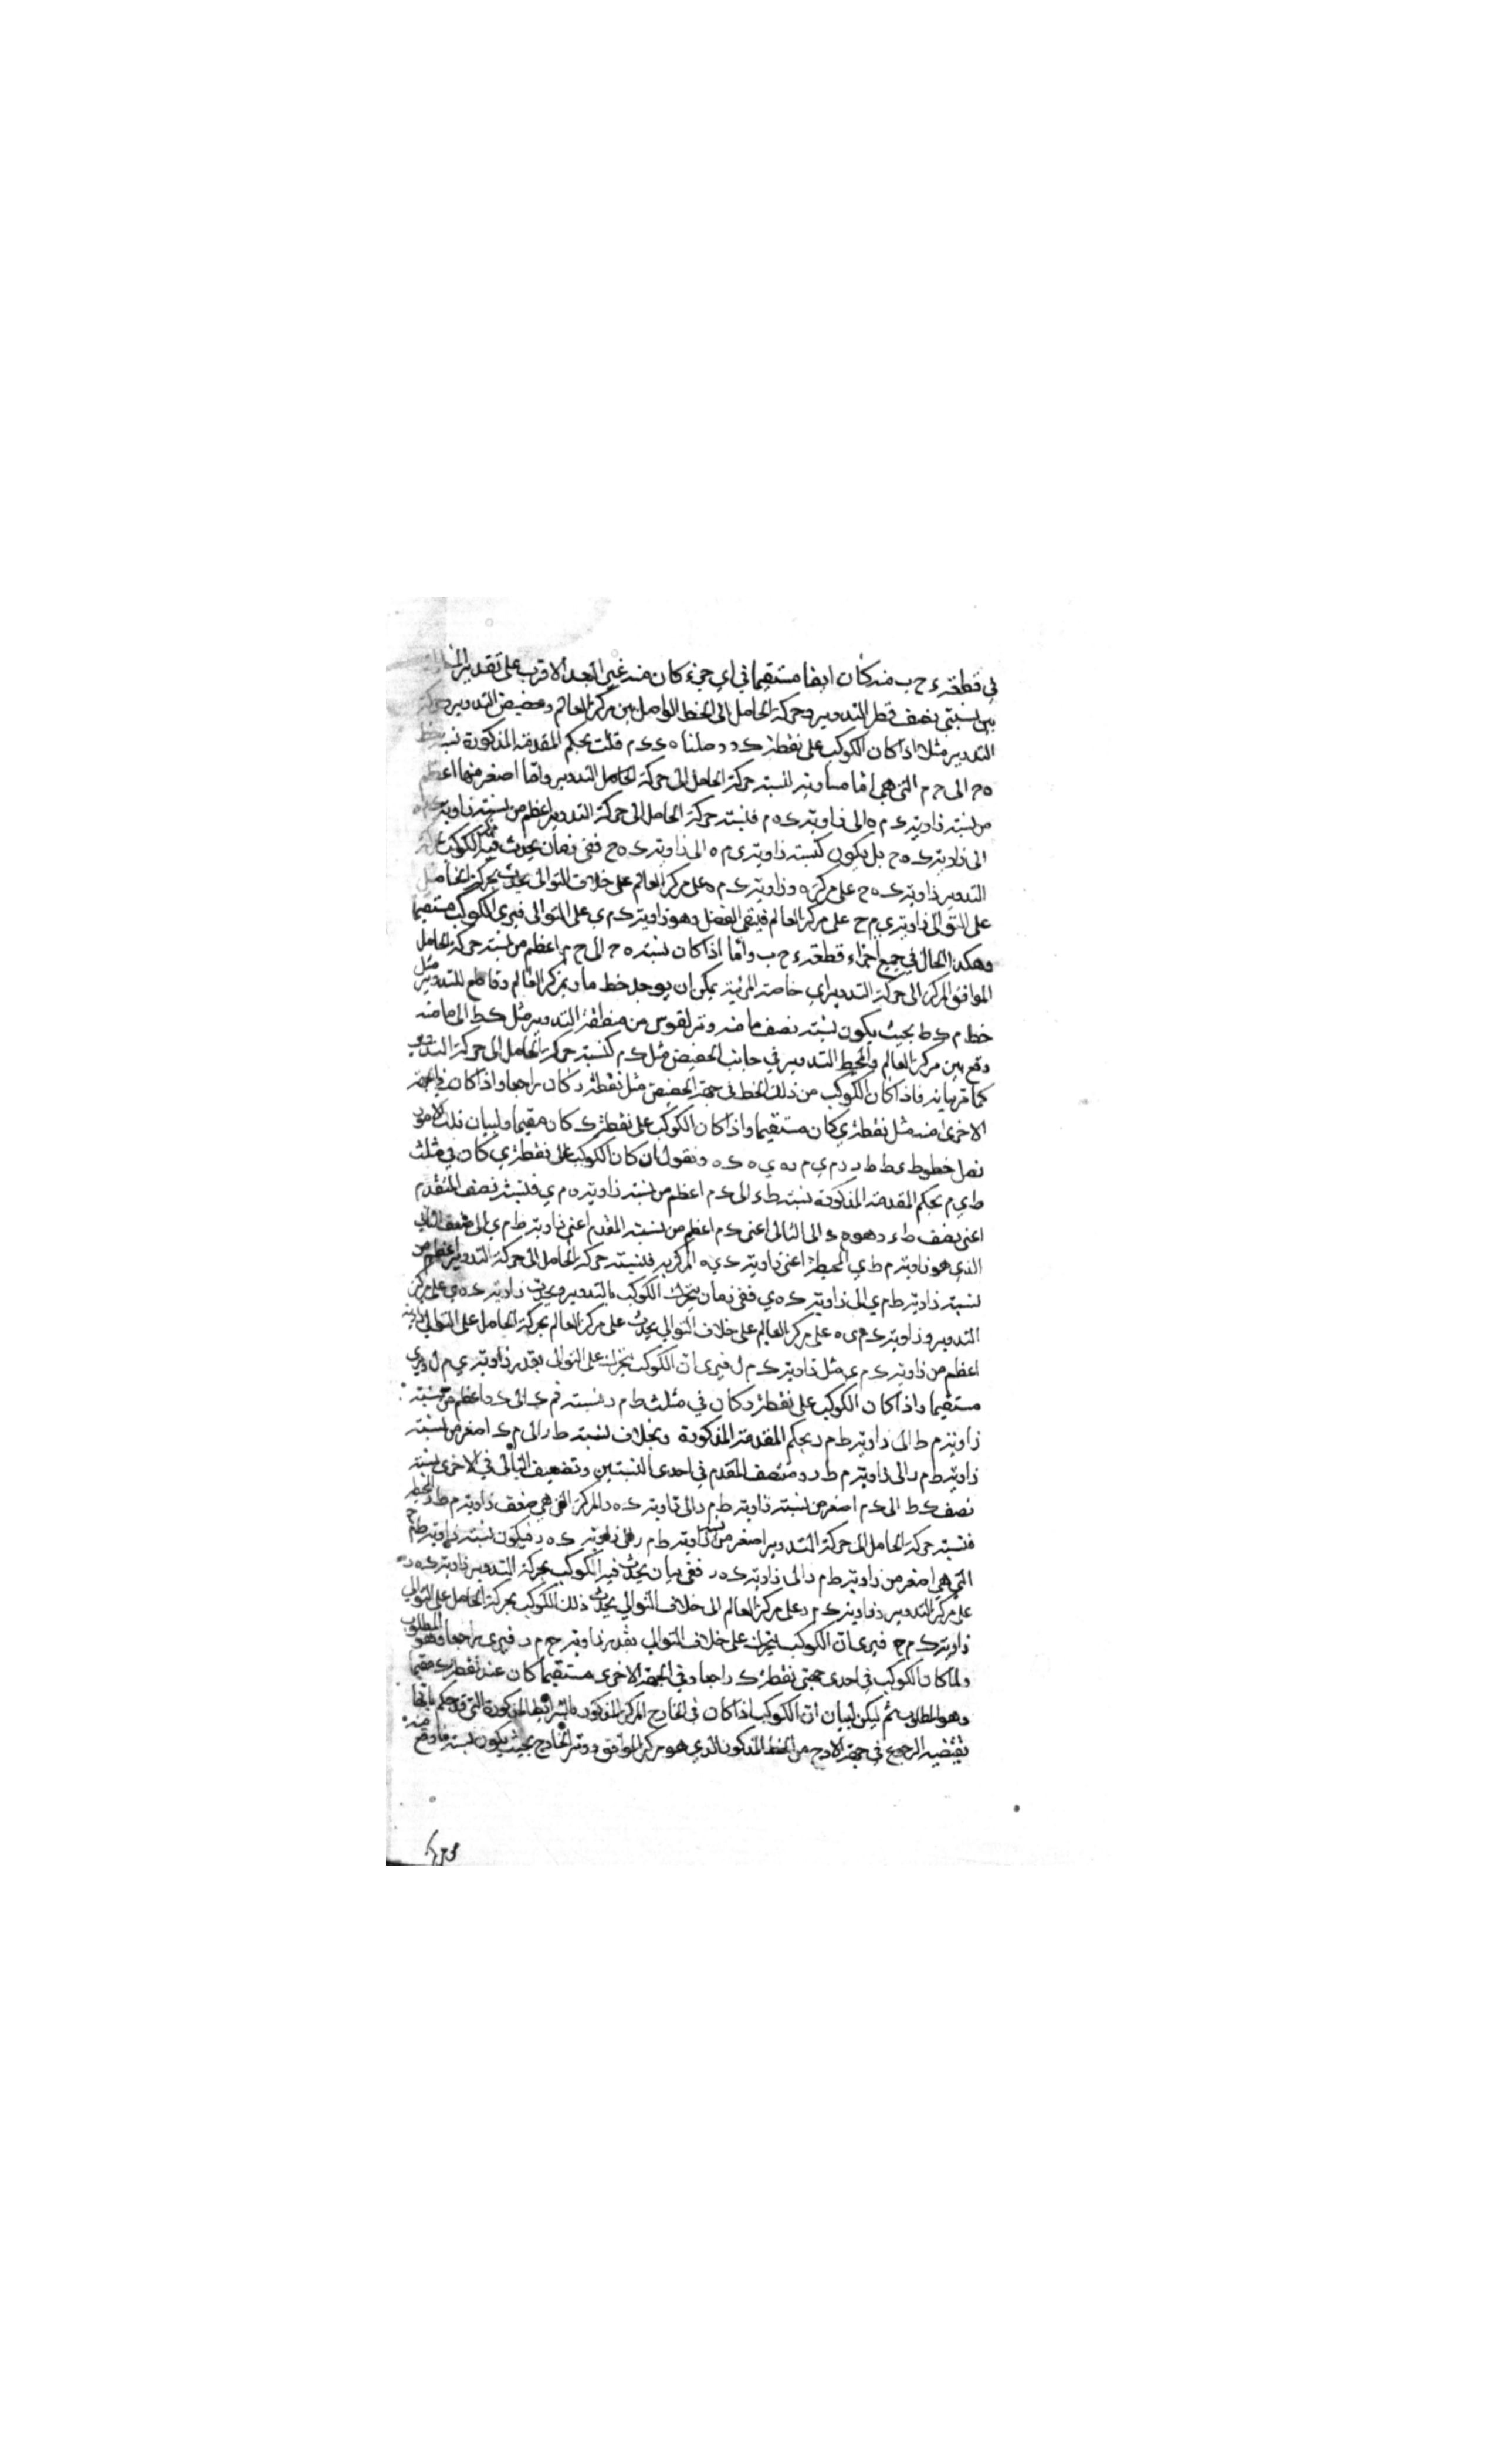 في قطعة ء ح ب منه كان ايضا مستقيما في اي جزء كان منه غير البعد الاقرب على تقدير
بين نسبتي نصف قطر التدوير وحركة الحامل الى الخط الواصل بين مركز العالم وحضيض التدوير وحركة
التدوير مثلا اذا كان الكوكب على نقطة ك ووصلنا ه ك ك م قلت بحكم المقدمة المذكورة نسبة خط
ه ح الى ح م التي هي اما مساوية لنسبة حركة الحامل الى حركة الحامل التدوير واما اصغر منها اعظم
من نسبة زاوية ك م ه الى زاوية ك ه م فلنسبة حركة الحامل الى حركة التدوير اعظم من نسبة زاوية
الى زاوية ك ه ح بل يكون كنسبة زاوية ي م ه الى زاوية ك ه ح ففي زمان يحدث فيه الكوكب بحركة
التدوير زاوية ك ه ح على مركز ه وزاوية ك م ه على مركز العالم على خلاف التوالي يحدث بحركة الحامل
على التوالي زاوية ي م ح على مركز العالم فيبقى الفضل وهو زاوية ك م ي على التوالي فيرى الكوكب مستقيما
وهكذا الحال في جميع اجزاء قطعة ء ح ب واما اذا كان نسبة ه ح الى ح م اعظم من نسبة حركة الحامل
الموافق المركز الى حركة التدوير اي خاصة المرئية يمكن ان يوجد خط مار بمركز العالم وقاطع للتدوير مثل
خط م ك ط بحيث يكون نسبة نصف ما منه وتر لقوس من منطقة التدوير مثل ك ط الى ما منه
وقع بين مركز العالم والمحيط التدوير في جانب الحضيض مثل ك م كنسبة حركة الحامل الى حركة التدوير
كما مر بيانه فاذا كان الكوكب من ذلك الخط في جهة الحضيض مثل نقطة ر كان راجعا واذا كان في الجهة
الاخرى منه مثل نقطة ي كان مستقيما واذا كان الكوكب على نقطة ك كان مقيما ولبيان تلك الامور
نصل خطوط ي ط ط ر ر م ي م ر ه ي ه ك ه ونقول ان كان الكوكب على نقطة ي كان في مثلث
ط ي م بحكم المقدمة المذكورة نسبة ط ك الى ك م اعظم من نسبة زاوية ه م ي فلنسبة نصف المقدم
اعني نصف ط ء وهو ه ء الى التالي اعني ك م اعظم من نسبة المقدم اعني زاوية ط م ي الى ضعف التالي
الذي هو زاوية م ط ي المحيطة اعني زاوية ك ي ه المركزية فلنسبة حركة الحامل الى حركة التدوير اعظم من
نسبة زاوية ط م ي الى زاوية ك ه ي ففي زمان يتحرك الكوكب بالتدوير ويحدث زاوية ك ه ي على مركز
التدوير وزاوية ك م ي ه على مركز العالم على خلاف التوالي يحدث على مركز العالم بحركة الحامل على التوالي زاوية
اعظم من زاوية ك م ي مثل زاوية ك م ل فيرى ان الكوكب يتحرك على التوالي بقدر زاوية ي م ل ويرى
مستقيما واذا كان الكوكب على نقطة ر كان في مثلث ط م ر نسبة م ك الى ك ط اعظم من نسبة
زاوية م ط الى زاوية ط م ر بحكم المقدمة المذكورة وبخلاف نسبة ط ر الى م ك اصغر من نسبة
زاوية ط م ر الى زاوية م ط ر ومنتصف المقدم في احدى النسبتين وتضعيف التالي في الاخرى نسبة
نصف ك ط الى ك م اصغر من نسبة زاوية ط م ر الى زاوية ك ه ر المركزية التي هي ضعف زاوية م ط ر المحيطية
فنسبة حركة الحامل الى حركة التدوير اصغر من نسبة زاوية ط م ر الى زاوية ك ه ر فيكون نسبة زاوية ط م ح
التي هي اصغر من زاوية ط م ر الى زاوية ك ه ر ففي بيان يحدث فيه الكوكب بحركة التدوير زاوية ك ه ر
على مركز التدوير وزاوية ك م ر على مركز العالم الى خلاف التوالي يحدث ذلك الكوكب بحركة الحامل على التوالي
زاوية ك م ح فيرى ان الكوكب يتحرك على خلاف التوالي بقدر زاوية ح م ر فيرى راجعا وهو المطلوب
ولما كان الكوكب في احدى جهتي نقطة ك راجعا وفي الجهة الاخرى مستقيما كان عند نقطة ك مقيما
وهو المطلوب ثم ليكن لبيان ان الكوكب اذا كان في الخارج المركز المذكور بالشرائط المذكورة التي قد حكم بانها
يقتضيه الرجوع في جهة الاوج من الخط المذكور الذي هو مركز الموافق ووتر الخارج بحيث يكون نسبة ما وقع منه